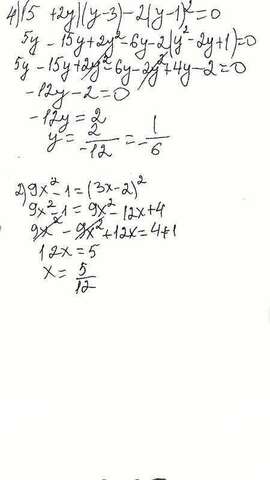 4) (5 +2y)(y-3)-2(y-1)²=0
5y - 15y+2y²-6y-2(y²-2y+1)=0
5y - 15y+2y²-6y-2y²+4y-2=0
-12y-2=0
-12y=2
y= 2/-12 = -1/6
2) 9x²-1=(3x-2)²
9x²-1=9x²-12x+4
9x²-9x²+12x=4+1
12x=5
x= 5/12